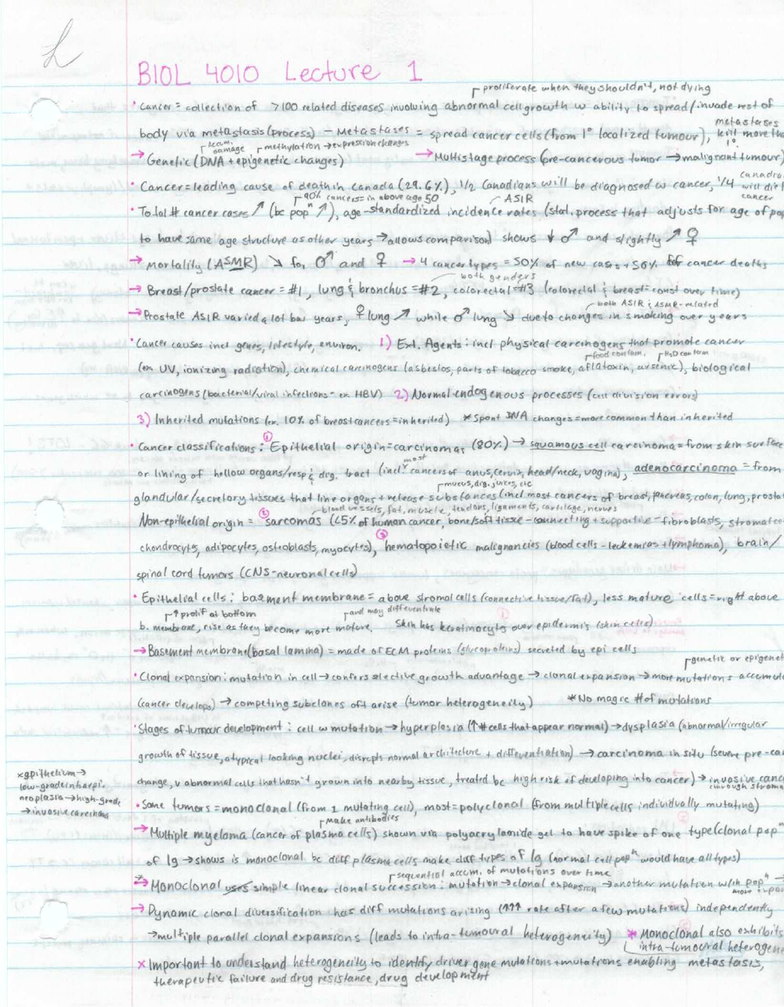 L
BIOL 4010 Lecture 1
proliferate when they shouldn't, not dying
• Cancer = collection of >100 related diseases involving abnormal cell growth w ability to spread/invade rest of
body via metastasis (process) – Metastases = spread cancer cells (from 1° localized tumour), kill more than
metastases
1°.
accum. damage
methylation → expression changes
→ Genetic (DNA + epigenetic changes) → Multistage process (pre-cancerous tumor → malignant tumour)
• Cancer = leading cause of death in Canada (29.6%), 1/2 Canadians will be diagnosed w cancer, 1/4 will die
cancer
90% cancers = in above age 50
ASIR
• Total # cancer cases ↗ (bc popⁿ ↗), age-standardized incidence rates (stat. process that adjusts for age of pop
to have same age structure as other years → allows comparison) shows ↓ ♂ and slightly ↗ ♀
→ Mortality (ASMR) ↘ for ♂ and ♀ → 4 cancer types = 50% of new cases + 50% for cancer deaths
both genders
→ Breast/prostate cancer = #1, lung & bronchus = #2, colorectal #3 (colorectal & breast = const over time)
both ASIR & ASMR-related
→ Prostate ASIR varied a lot bw years, ♀ lung ↗ while ♂ lung ↘ due to changes in smoking over years
• Cancer causes incl genes, lifestyle, environ. 1) Ext. Agents: incl physical carcinogens that promote cancer
food contam. H₂O contam
(ex UV, ionizing radiation), chemical carcinogens (asbestos, parts of tobacco smoke, aflatoxin, arsenic), biological
carcinogens (bacterial/viral infections - ex HBV) 2) Normal endogenous processes (cell division errors)
3) Inherited mutations (ex. 10% of breast cancers = inherited) * Spont DNA changes = more common than inherited
• Cancer classifications: ① Epithelial origin = carcinomas (80%) → squamous cell carcinoma = from skin surface
most
or lining of hollow organs/resp & dig. tract (incl cancers of anus, cervix, head/neck, vagina), adenocarcinoma = from
mucus, dig. juices, etc
glandular/secretory tissues that line organs + release substances (incl most cancers of breast, pancreas, colon, lung, prostate
blood vessels, fat, muscle, tendons, ligaments, cartilage, nerves
Non-epithelial origin = ② sarcomas (<5% of human cancer, bone/soft tissue - connecting + supportive - fibroblasts, stromal
chondrocytes, adipocytes, osteoblasts, myocytes), ③ hematopoietic malignancies (blood cells - leukemias + lymphoma), brain/
spinal cord tumors (CNS - neuronal cells)
• Epithelial cells: basment membrane = above stromal cells (connective tissue/fat), less mature cells = right above
↑ prolif at bottom
and may differentiate
b. membrane, rise as they become more mature. Skin has keratinocytes over epidermis (skin cells)
→ Basement membrane (basal lamina) = made of ECM proteins (glycoproteins) secreted by epi cells
genetic or epigenet
• Clonal expansion: mutation in cell → confers selective growth advantage → clonal expansion → more mutations accumul
(cancer develops) → competing subclones oft arise (tumor heterogeneity) * No magic # of mutations
• Stages of tumour development: cell w mutation → hyperplasia (↑ # cells that appear normal) → dysplasia (abnormal/irregular
growth of tissue, atypical looking nuclei, disrupts normal architecture + differentiation) → carcinoma in situ (severe pre-can
change, v abnormal cells that hasn't grown into nearby tissue, treated bc high risk of developing into cancer) → invasive canc
(through stroma
* epithelium →
low-grade intraepi.
neoplasia → high-grade
→ invasive carcinoma
• Some tumors = monoclonal (from 1 mutating cell), most = polyclonal (from multiple cells individually mutating)
make antibodies
→ Multiple myeloma (cancer of plasma cells) shown via polyacrylamide gel to have spike of one type (clonal popⁿ
of Ig → shows is monoclonal bc diff plasma cells make diff types of Ig (normal cell popⁿ would have all types)
sequential accum. of mutations over time
→ Monoclonal uses simple linear clonal succession: mutation → clonal expansion → another mutation w/in popⁿ →
more expan
→ Dynamic clonal diversification has diff mutations arising (↑↑↑ rate after a few mutations) independently
→ multiple parallel clonal expansions (leads to intra-tumoural heterogeneity) * Monoclonal also exhibits
intra-tumoural heterogene
* Important to understand heterogeneity to identify driver gene mutations + mutations enabling metastasis,
therapeutic failure and drug resistance, drug development